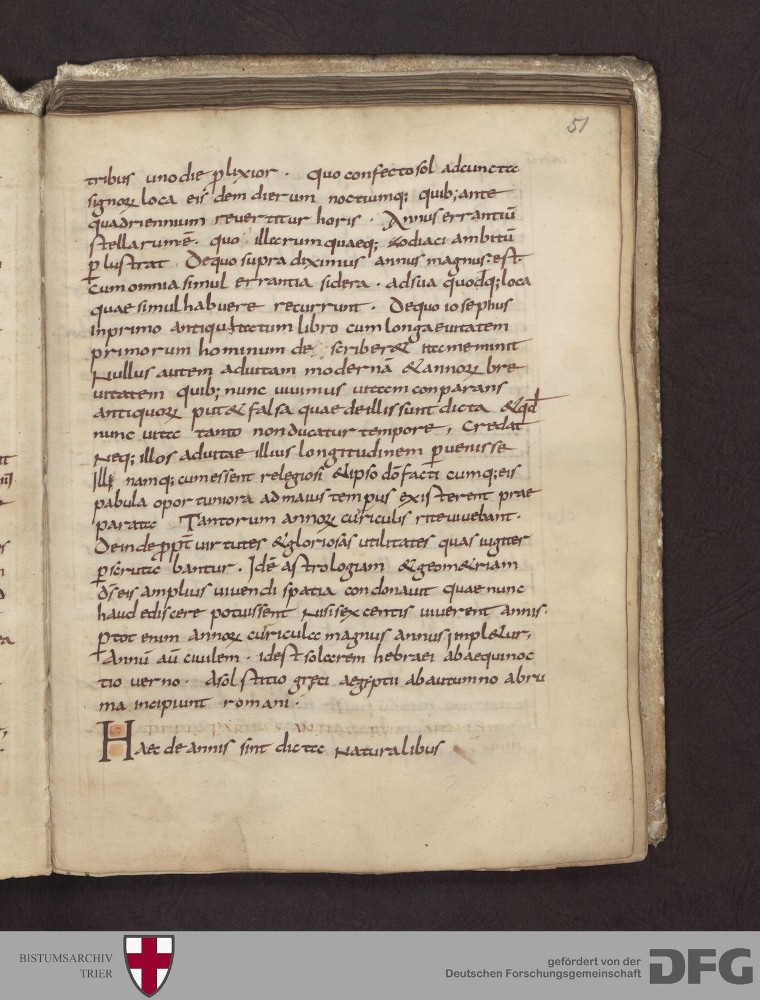 51
tribus uno die plixior · Quo confecto sol ad cunctæ
signoꝝ loca eisdem dierum noctiumq; quib; ante
quadriennium revertitur horis · Annus errantiū
stellarum ē · quo illarum quaeq; zodiaci ambitū
plustrat · De quo supra diximus annus magnus est ·
Cum omnia simul errantia sidera · ad sua quoq; loca
quae simul habuere recurrunt · De quo iosephus
in primo antiquitatum libro cum longaevitatem
primorum hominum de scriberet ita meminit
Nullus autem ad vitam modernā & annoꝝ bre
vitatem quib; nunc vivimus vitam conparans
antiquoꝝ putet falsa quae de illis sunt dicta & qđ
nunc vita tanto non ducatur tempore, Credat
Neq; illos ad vitae illius longitudinem pvenisse
Illi namq; cum essent relegiosi & ipso dō facti cumq; eis
pabula oportuniora ad maius tempus existerent prae
parata Tantorum annoꝝ curiculis rite vivebant ·
Deinde ppt virtutes & gloriosas utilitates quas iugiter
pscruta bantur · Idē astrologiam & geometriam
đs eis amplius vivendi spatia condonavit quae nunc
haud ediscere potuissent Nisi sexcentis viverent annis ·
p tot enim annoꝝ curicula magnus annus impletur,
Annū aū civilem · id est solarem hebraei ab aequinoc
tio verno · A solstitio greci aegyptii ab autumno a bru
ma incipiunt romani ·
Haec de annis sint dicta Naturalibus
BISTUMSARCHIV
TRIER
gefördert von der
Deutschen Forschungsgemeinschaft
DFG